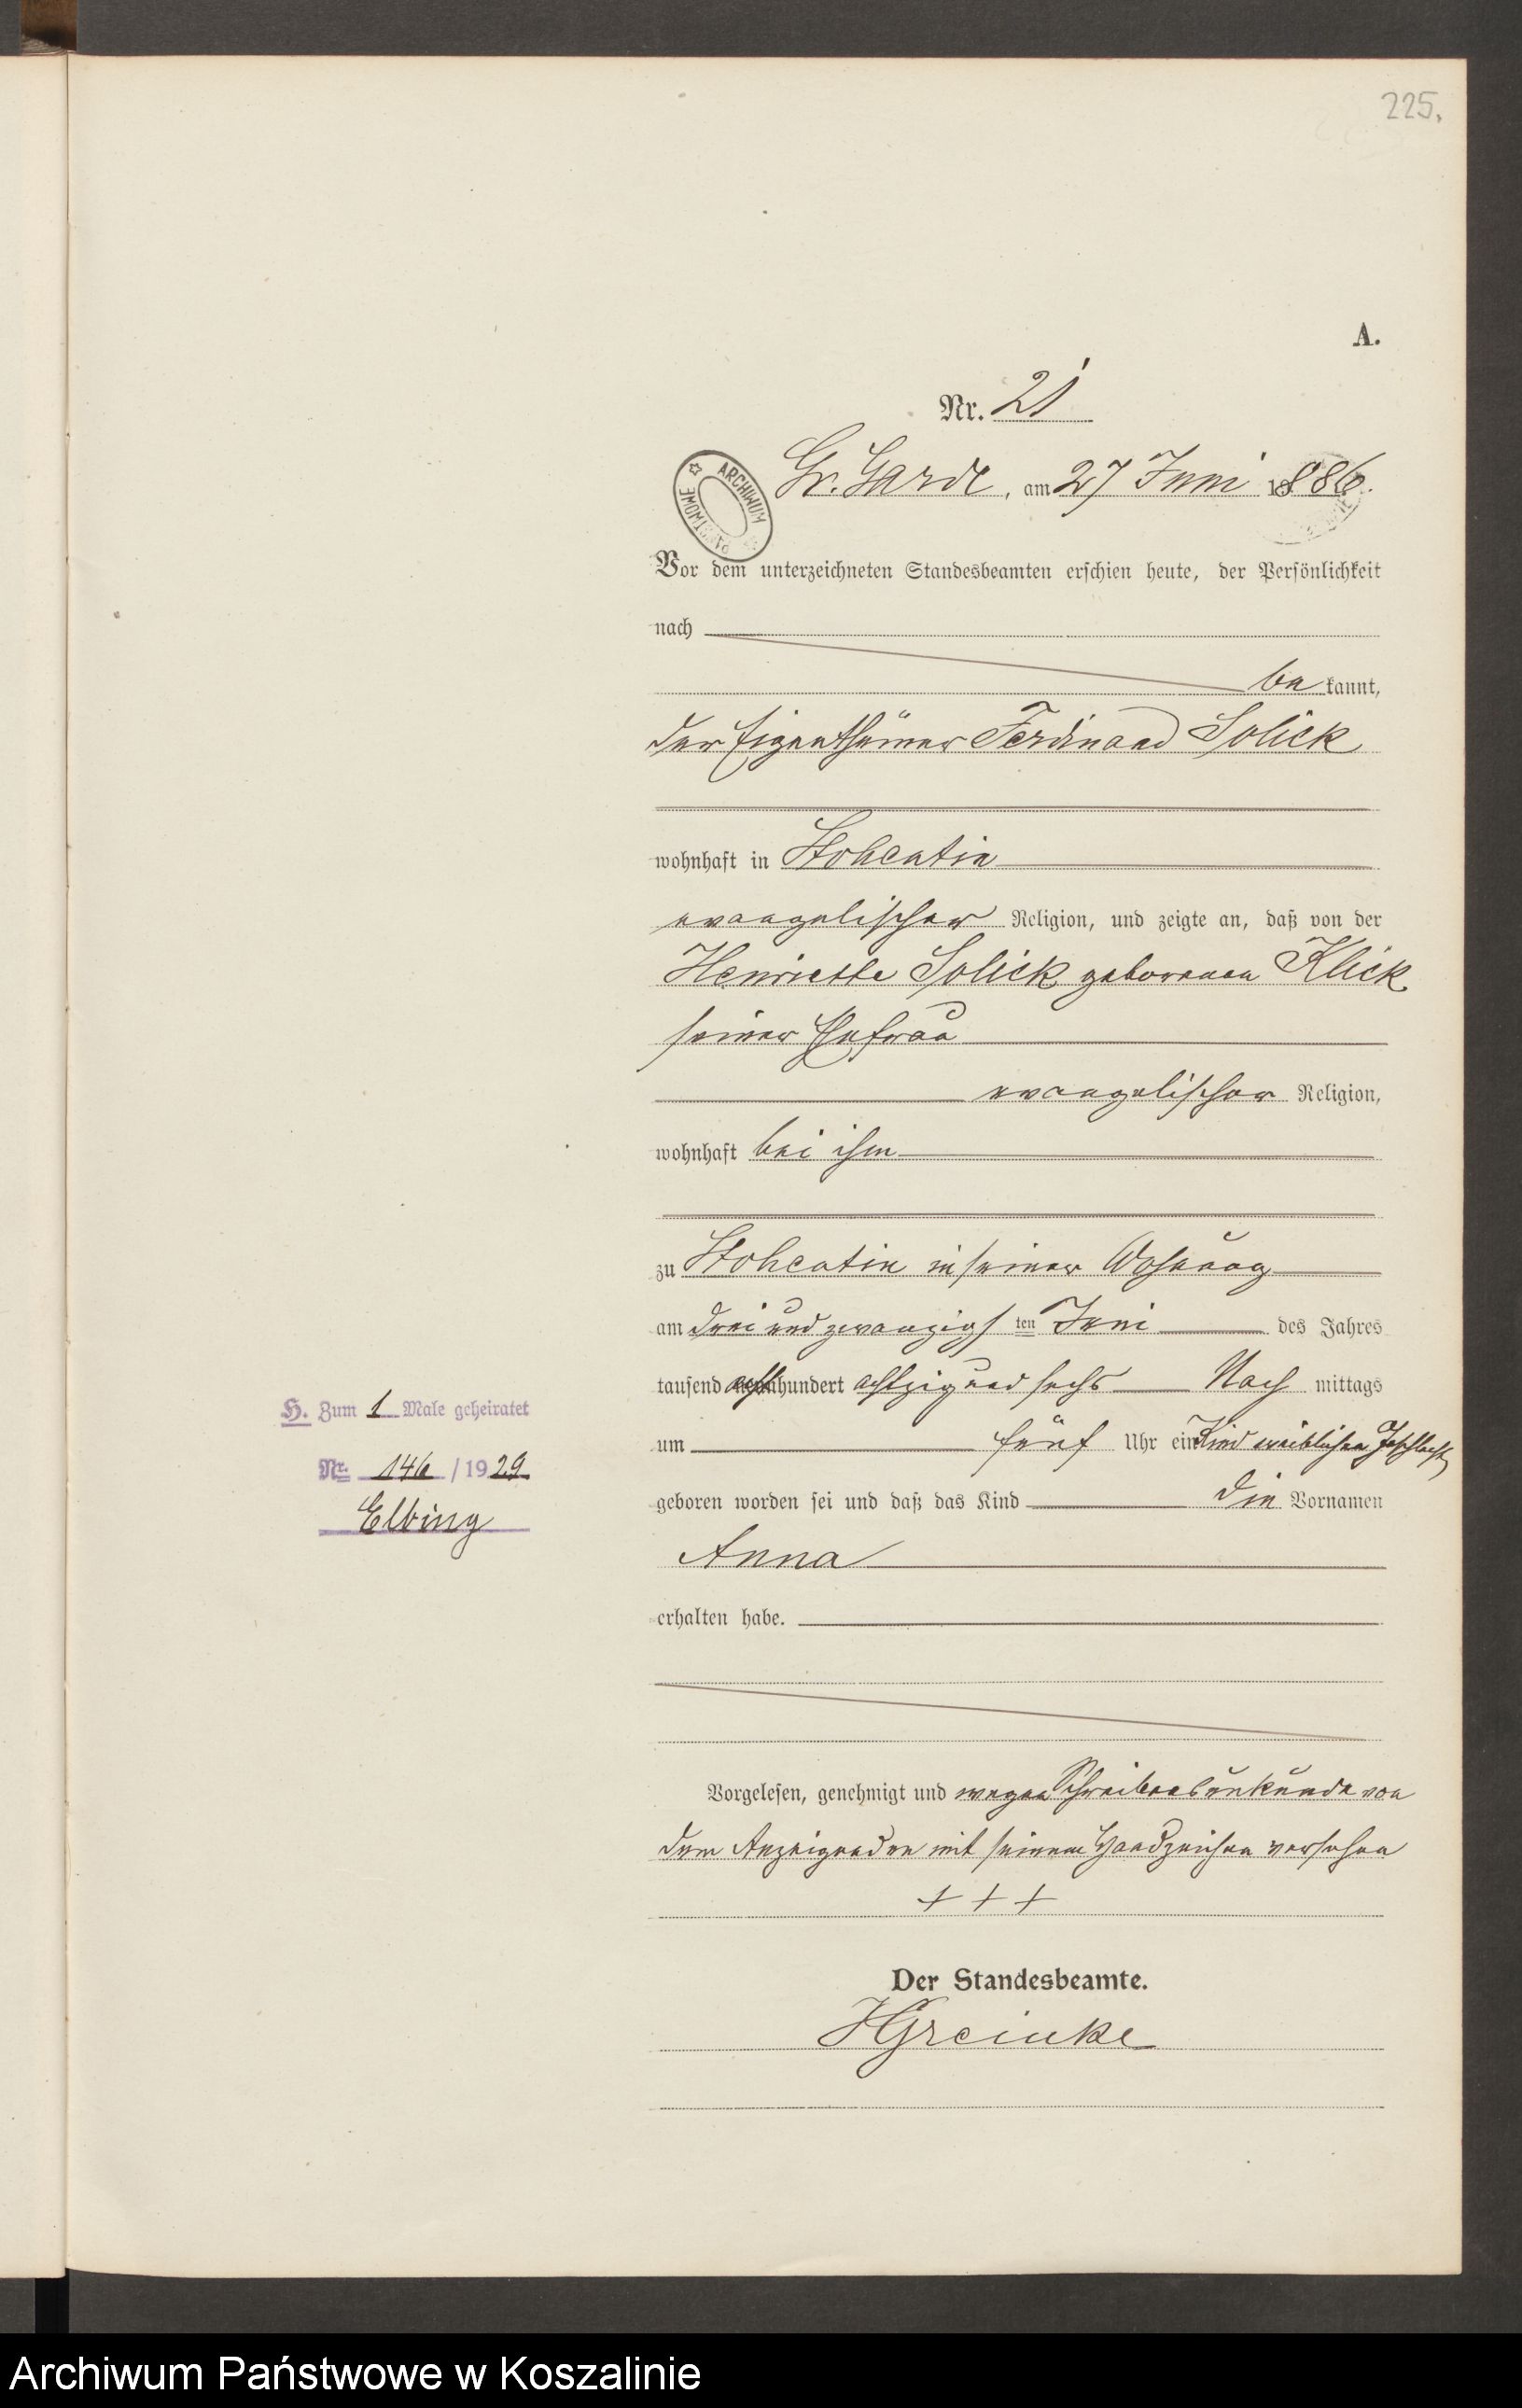 225.
A.
Nr. 21
ARCHIWUM
Gr. Garde, am 27 Juni 1886.
Vor dem unterzeichneten Standesbeamten erschien heute, der Persönlichkeit
nach
be kannt,
der Eigenthümer Ferdinand Solick
wohnhaft in Stohentin
evangelischer Religion, und zeigte an, daß von der
Henriette Solick geborenen Klick
seiner Ehefrau
evangelischer Religion,
wohnhaft bei ihm
zu Stohentin in seiner Wohnung
am drei und zwanzigsten Juni des Jahres
tausend acht hundert achtzig und sechs Nach mittags
um fünf Uhr ein Kind weiblichen Geschlechts
geboren worden sei und daß das Kind die Vornamen
Anna
erhalten habe.
H. Zum 1 Male geheiratet
Nr. 146 / 1929
Elbing
Vorgelesen, genehmigt und wegen Schreibensunkunde von
dem Anzeigenden mit seinem Handzeichen versehen
+ + +
Der Standesbeamte.
HGreinke
Archiwum Państwowe w Koszalinie